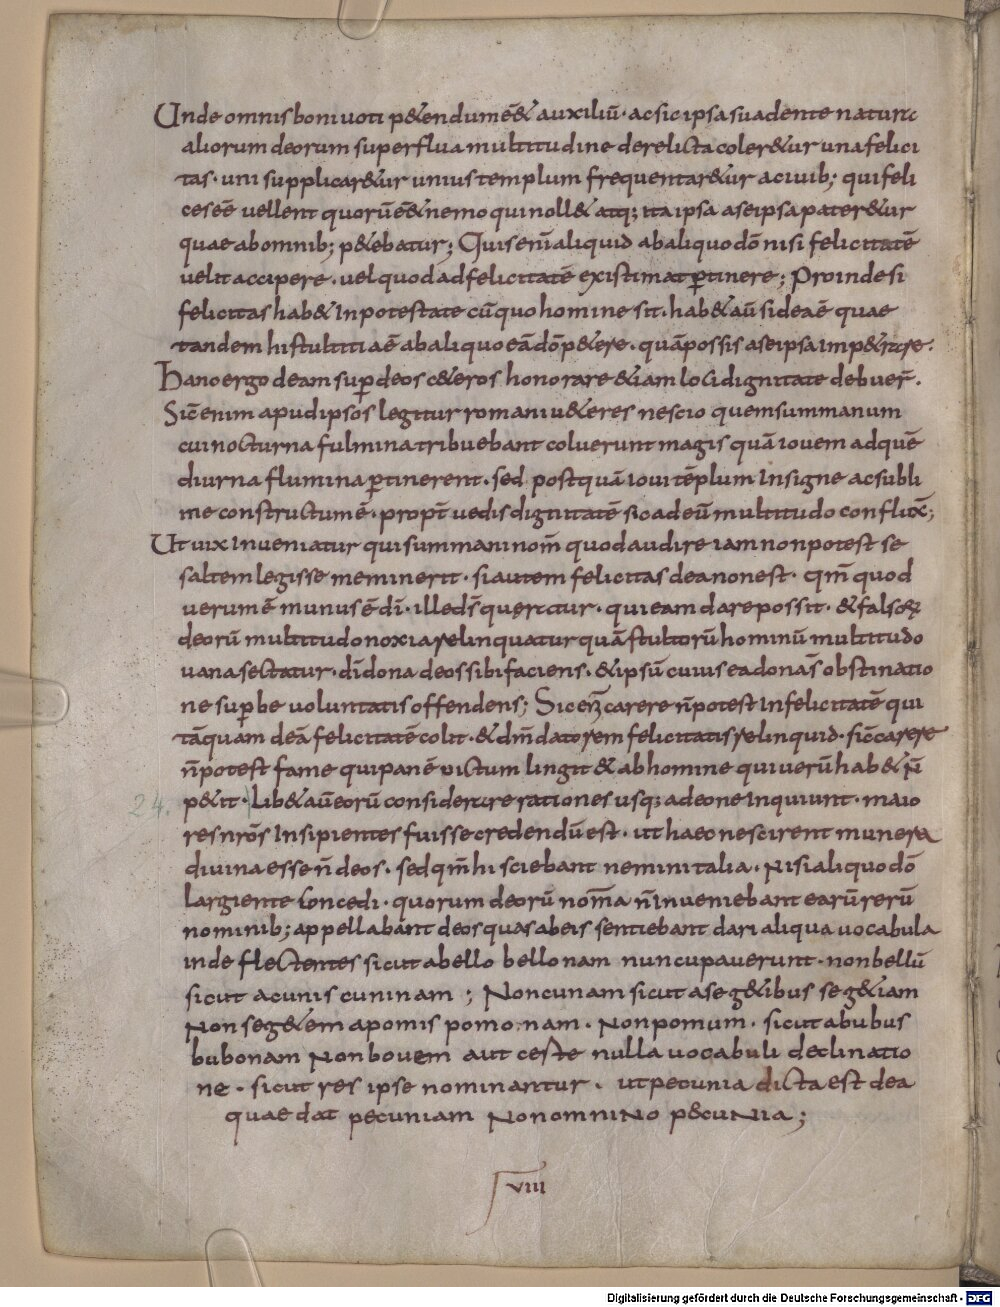 Unde omnis boni uoti p&endum ē & auxiliū · ac sic ipsa suadente natura
aliorum deorum superflua multitudine derelicta coler&ur una felici
tas · uni supplicar&ur unius templum frequentar&ur a ciuib; qui feli
ces eē uellent quorū eē& nemo qui noll& atq; ita ipsa a se ipsa pater&ur
quae ab omnib; p&ebatur; Quis enī aliquid ab aliquo dō nisi felicitatē
uelit accipere · uel quod ad felicitatē existimat ptinere; Proinde si
felicitas hab& in potestate cū quo homine sit · hab& aū si dea ē quae
tandem hi stultitia ē ab aliquo eā dō p&ere · quā possis a se ipsa imp&rare ·
Hanc ergo deam sup deos c&eros honorare &iam loci dignitate debuer̄ ·
Sic̄ enim apud ipsos legitur romani u&eres nescio quem summanum
cui nocturna fulmina tribuebant coluerunt magis quā iouem ad quē
diurna flumina ptinerent · sed postquā ioui tēplum insigne ac subli
me constructum ē · propt̄ aedis dignitatē sic ad eū multitudo conflux̄;
Ut uix inueniatur qui summani nom̄ quod audire iam non potest se
saltem legisse meminerit · si autem felicitas dea non est · qm̄ quod
uerum ē munus ē dī · ille ds̄ quęratur · qui eam dare possit · & falsoꝝ
deorū multitudo noxia relinquatur quā stultorū hominū multitudo
uana sectatur · dī dona deos sibi faciens · & ipsū cuius ea dona s̄ obstinatio
ne supbe uoluntatis offendens; Sic enī carere n̄ potest infelicitatē qui
tāquam deā felicitatē colit · & dm̄ datorem felicitatis relinquid · sic̄ carere
n̄ potest fame qui panē pictum lingit & ab homine qui uerū hab& n̄
24. p&it · Lib& aū eorū considerare rationes usq; adeone inquiunt · maio
res nrōs insipientes fuisse credendū est · ut haec nescirent munera
diuina esse n̄ deos · sed qm̄ hi sciebant nemini talia · nisi aliquo dō
largiente concedi · quorum deorū nom̄a n̄ inueniebant earū rerū
nominib; appellabant deos quas ab eis sentiebant dari aliqua uocabula
inde flectentes sicut a bello bellonam nuncupauerunt · non bellū
sicut a cunis cuninam ; Non cunam sicut a seg&ibus seg&iam
Non seg&em a pomis pomonam · Non pomum · sicut a bubus
bubonam Non bouem aut ceste nulla uocabuli declinatio
ne · sicut res ipse nominantur · ut pecunia dicta est dea
quae dat pecuniam Non omnino pecunia ;
VIII
Digitalisierung gefördert durch die Deutsche Forschungsgemeinschaft - DFG